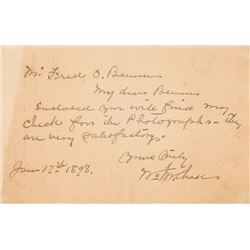 Mr. Fred O. Bemm
My dear Bemm
Enclosed you will find my
check for the Photographs - they
are very satisfactory.
Yours truly
Wm M Chase
Jan 12th 1898.